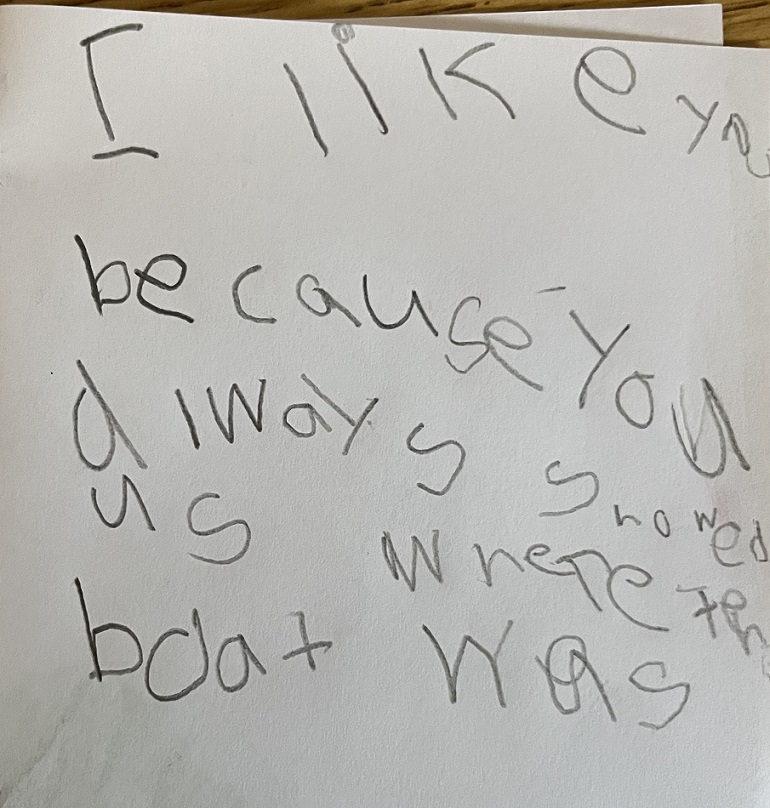 I like you
because you
always showed
us where the
boat was